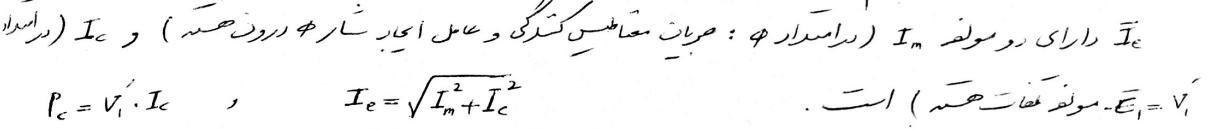 Īe دارای دو مولفه Im (در امتداد φ : جریان مغناطیس کنندگی و عامل ایجاد شار φ درون هسته) و Ic (در امتداد
-Ē₁ = V₁′ مولفه تلفات هسته) است. Ie = √(Im² + Ic²) و Pc = V₁′ · Ic